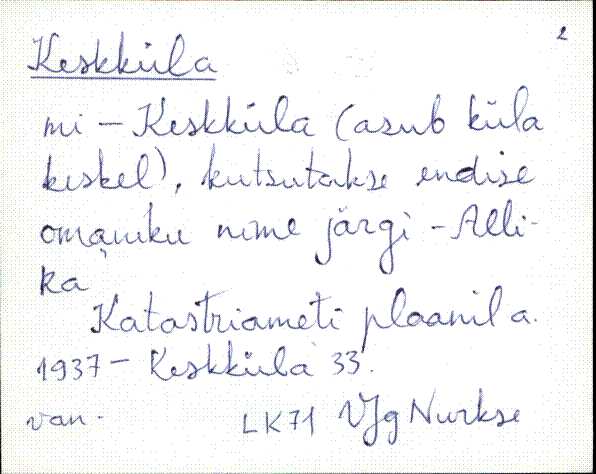 2
Keskküla
mi - Keskküla (asub küla
keskel), kutsutakse endise
omaniku nime järgi - Alli-
ka
Katastriameti plaanil a.
1937 - Keskküla 33.
van.
LK71 VJg Nurkse